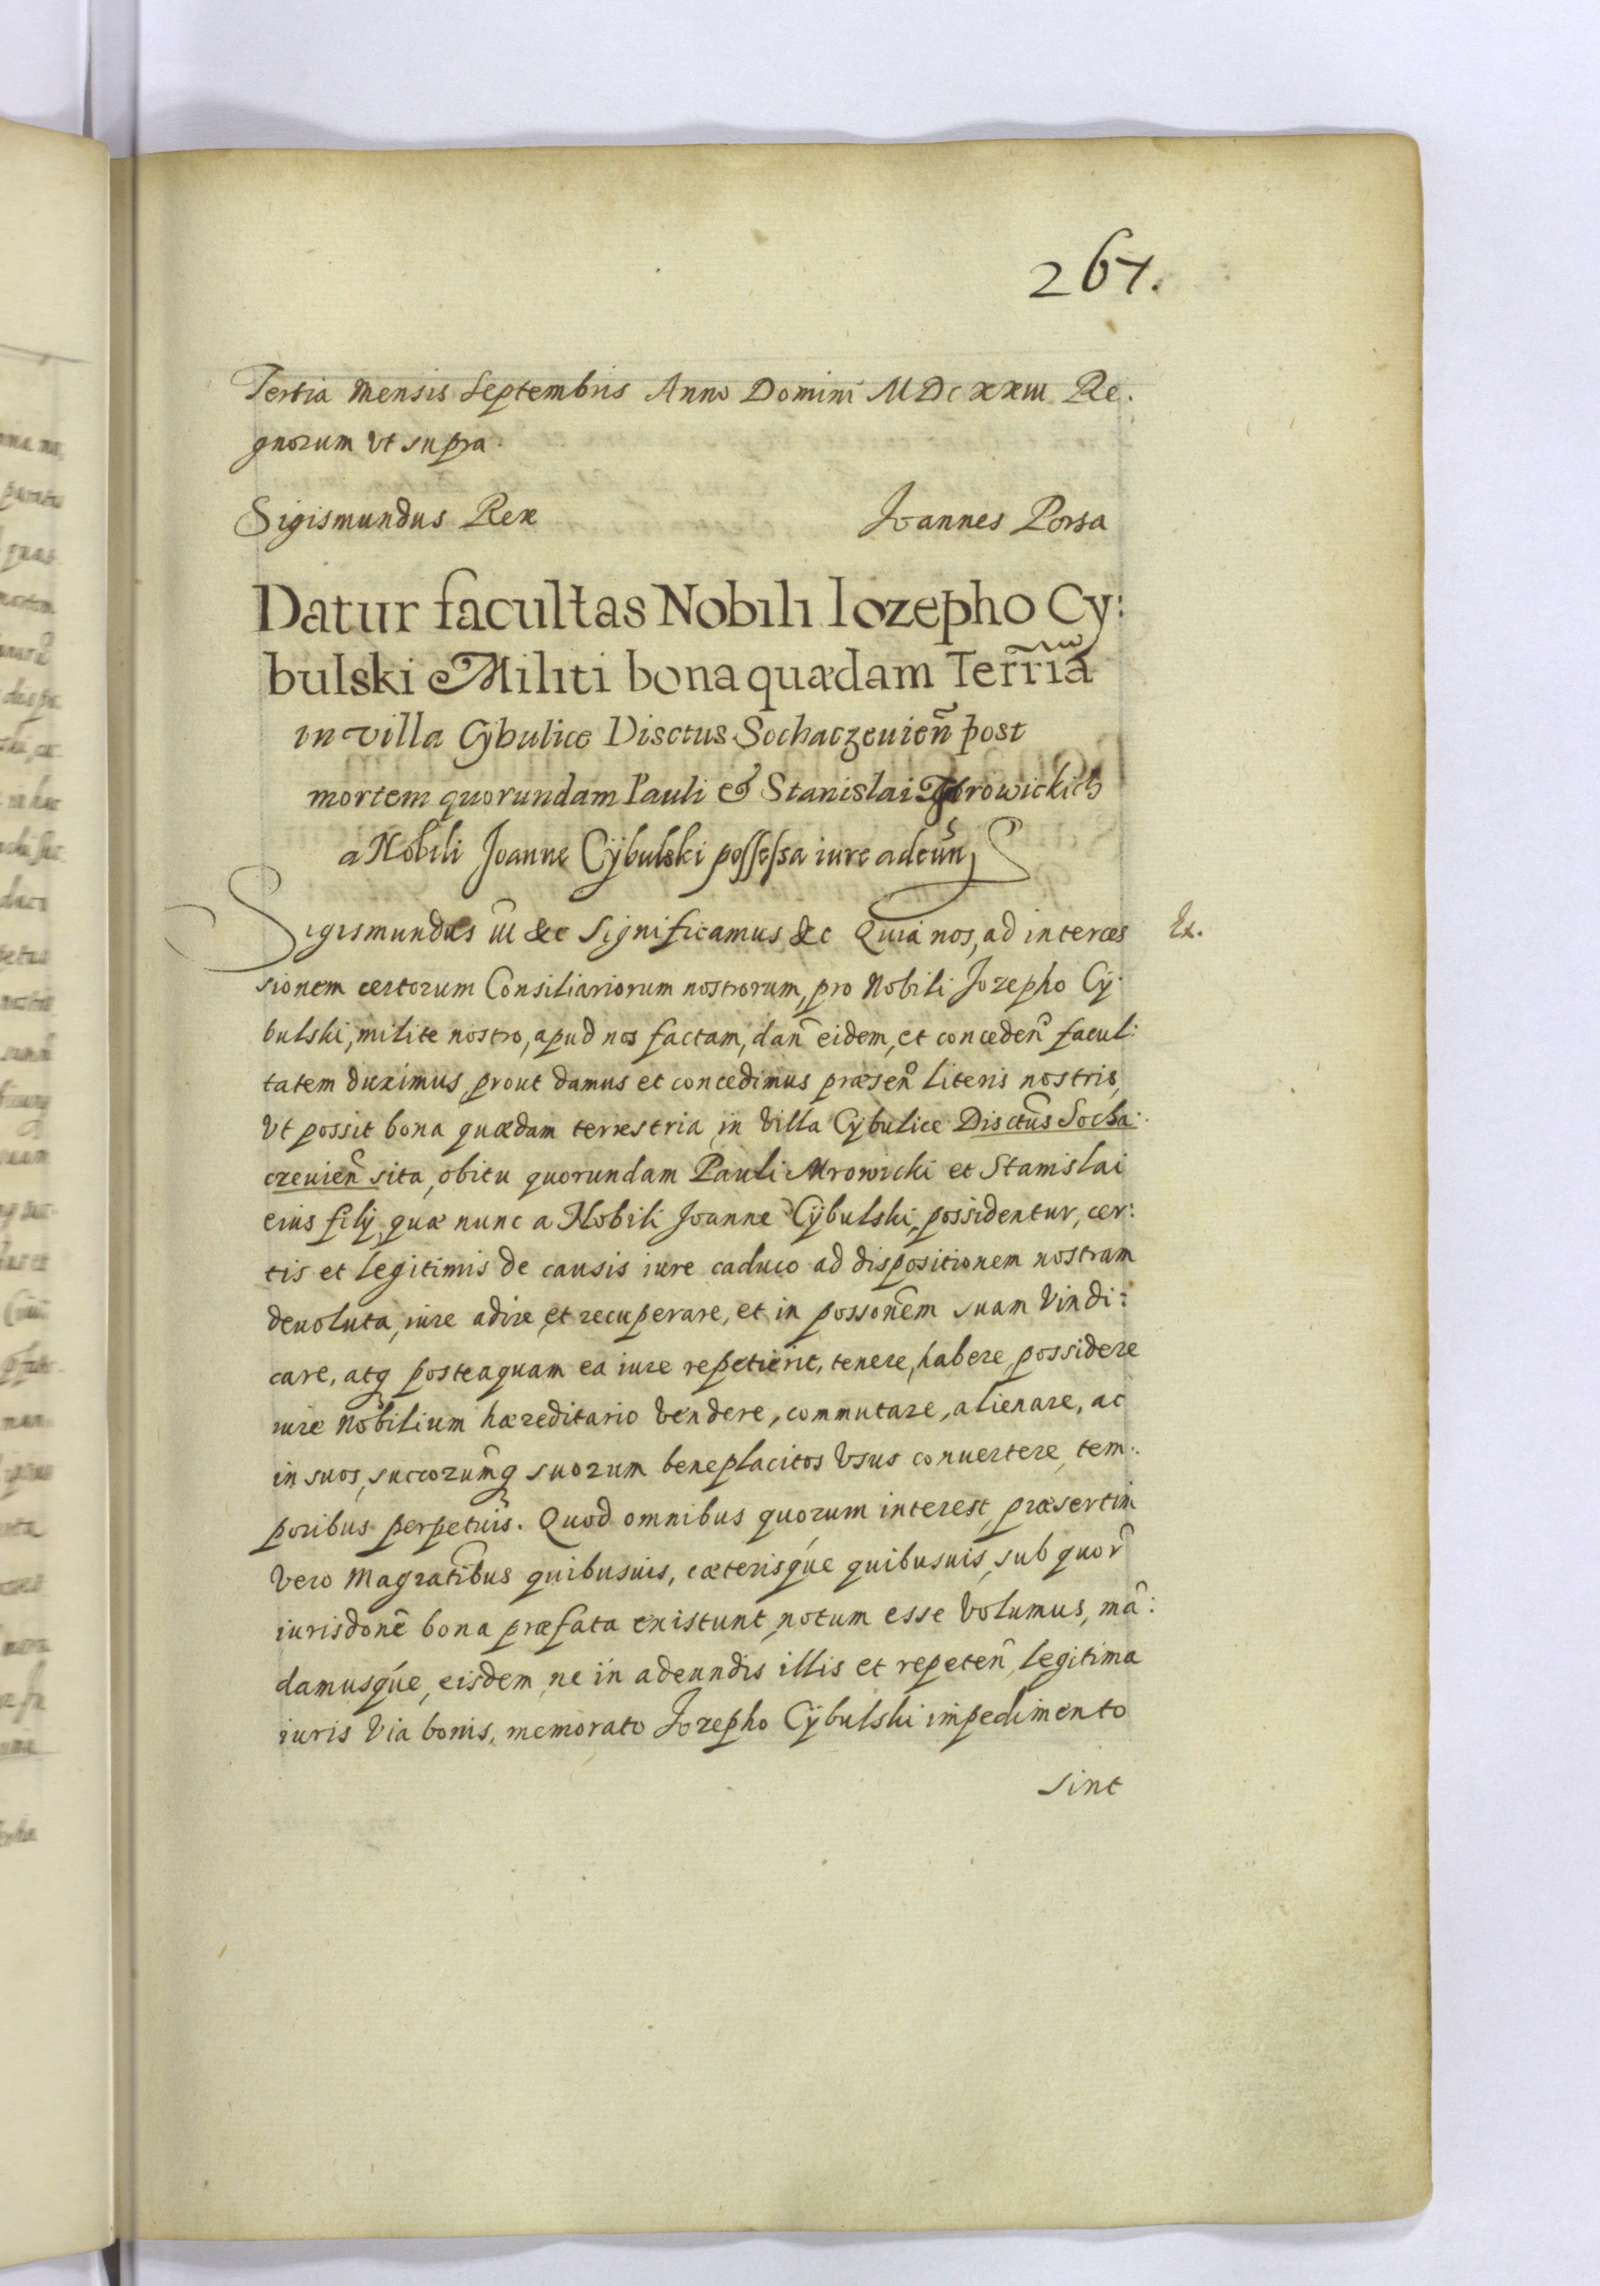 267.
Tertia Mensis Septembris Anno Domini MDCXXIII Re.
gnorum vt supra.
Sigismundus Rex Joannes Porsa
Datur facultas Nobili Iozepho Cy:
bulski Militi bona quædam Terrīa
in villa Cybulice Disctus Sochaczeuień post
mortem quorundam Pauli & Stanislai Mrowickich
a Nobili Joanne Cÿbulski possessa iure adeuñ
Sigismundus III &c Significamus &c Quia nos, ad interces Ex.
sionem certorum Consiliariorum nostrorum, pro Nobili Jozepho Cy:
bulski, milite nostro, apud nos factam, dañ eidem, et conceden̄ facul:
tatem duximus, prout damus et concedimus præsen̄ literis nostris,
Vt possit bona quædam terrestria in Villa Cybulice Disctūs Socha:
czeuien̄ sita, obitu quorundam Pauli Mrowicki et Stanislai
eius filÿ, quæ nunc a Nobili Joanne Cÿbulski, possidentur, cer:
tis et legitimis de causis iure caduco ad dispositionem nostram
deuoluta, iure adire, et recuperare, et in possonēm suam Vindi:
care, atq̨ posteaquam ea iure repetierit, tenere, habere, possidere
iure Nobilium hæreditario Vendere, commutare, alienare, ac
in suos, succorum̄q̨ suorum beneplacitos Vsus conuertere, tem:
poribus perpetuis. Quod omnibus quorum interest, præsertim
Vero Magratībus quibusuis, cæterisque quibusuis, sub quor̄
iurisdonē bona præfata existunt, notum esse Volumus, mā:
damusque, eisdem, ne in adeundis illis et repeten̄ legitima
iuris Via bonis, memorato Jozepho Cÿbulski impedimento
sint